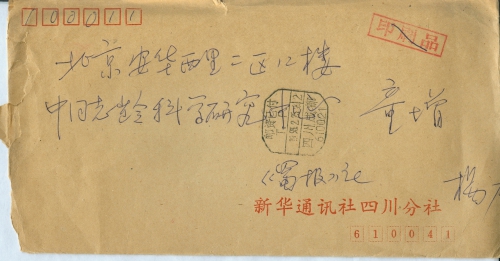 100011
印刷品
北京安华西里二区12楼
中国老龄科学研究中心 童增
邮资已付
四川成都
610021
《蜀报》社 杨
新华通讯社四川分社
610041